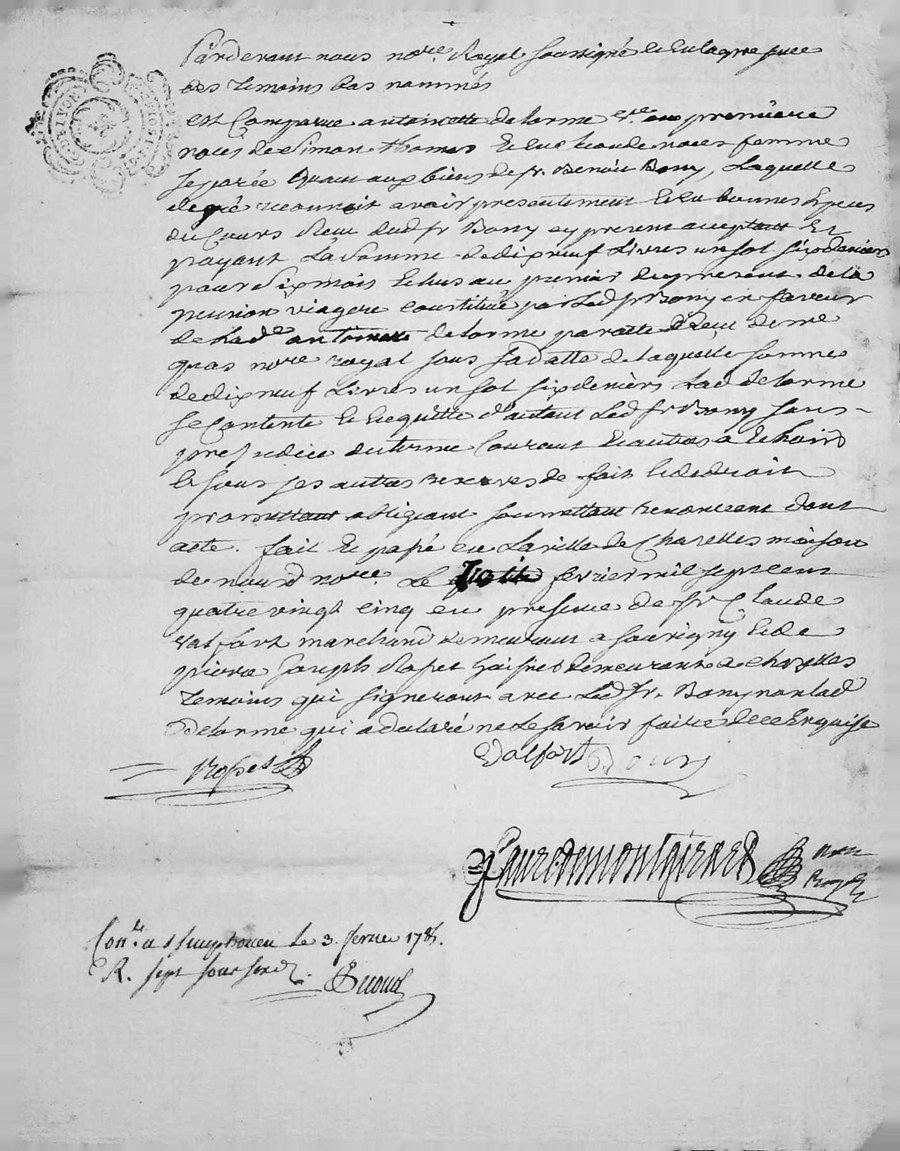 Pardevant nous no.re Royal soussigné et en la presence
des temoins bas nommés
est Comparue antoinette delorme v.ve en première
noces de Simon thomas et en seconde noces femme
separée quant aux biens de s.r Benoit Bony, laquelle
de gré reconnoit avoir presentement et en bonnes especes
du Cours Receu dud s.r Bony cy present acceptant et
payant La somme de dixneuf Livres un sol six deniers
pour six mois echus au premier du present de la
pension viagere constitué par led s.r Bony en faveur
de lad.e antoinette delorme par acte Receu de me
no.re royal sous sa datte de laquelle somme
de dixneuf Livres un sol six deniers lad delorme
se Contente et en quitte d'autant Led s.r Bony sans
prejudice du terme Courant et autres a Echoir
et sous ses autres reserves de fait et de droit
promettant obligeant soumettant renonceant dont
acte. fait et passé en La ville de Chazelles maison
de nousd no.re Le fevrier mil sept cent
quatre vingt cinq en presence de s.r Claude
valfort marchand demeurant a souvigny et de
pierre Joseph demeurant a chazelles
temoins qui signeront avec Led s.r Bony non lad
Delorme qui a declaré ne le savoir faire de ce Enquise
Valfort Bony
fauredemontgirard no.re
Royal
Con.lé a le 3. fevrier 1785.
R. sept sous six d.